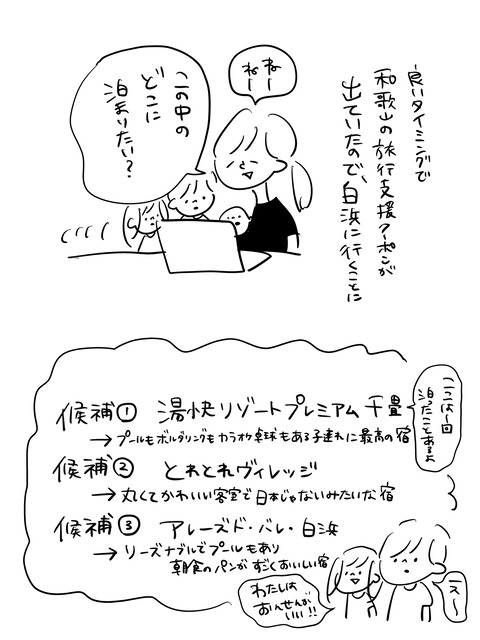 良いタイミングで
和歌山の旅行支援クーポンが
出ていたので、白浜に行くことに
ねー
ねー
この中の
どこに
泊まりたい?
候補① 湯快リゾートプレミアム千畳
→プールもボルダリングもカラオケ卓球もある子連れに最高の宿
ここは一回
泊ったことあるよ
候補② とれとれヴィレッジ
→丸くてかわいい客室で日本じゃないみたいな宿
候補③ アレーズド・バレ・白浜
→リーズナブルでプールもあり
朝食のパンがすごくおいしい宿
わたしは
おんせんが
いい!!